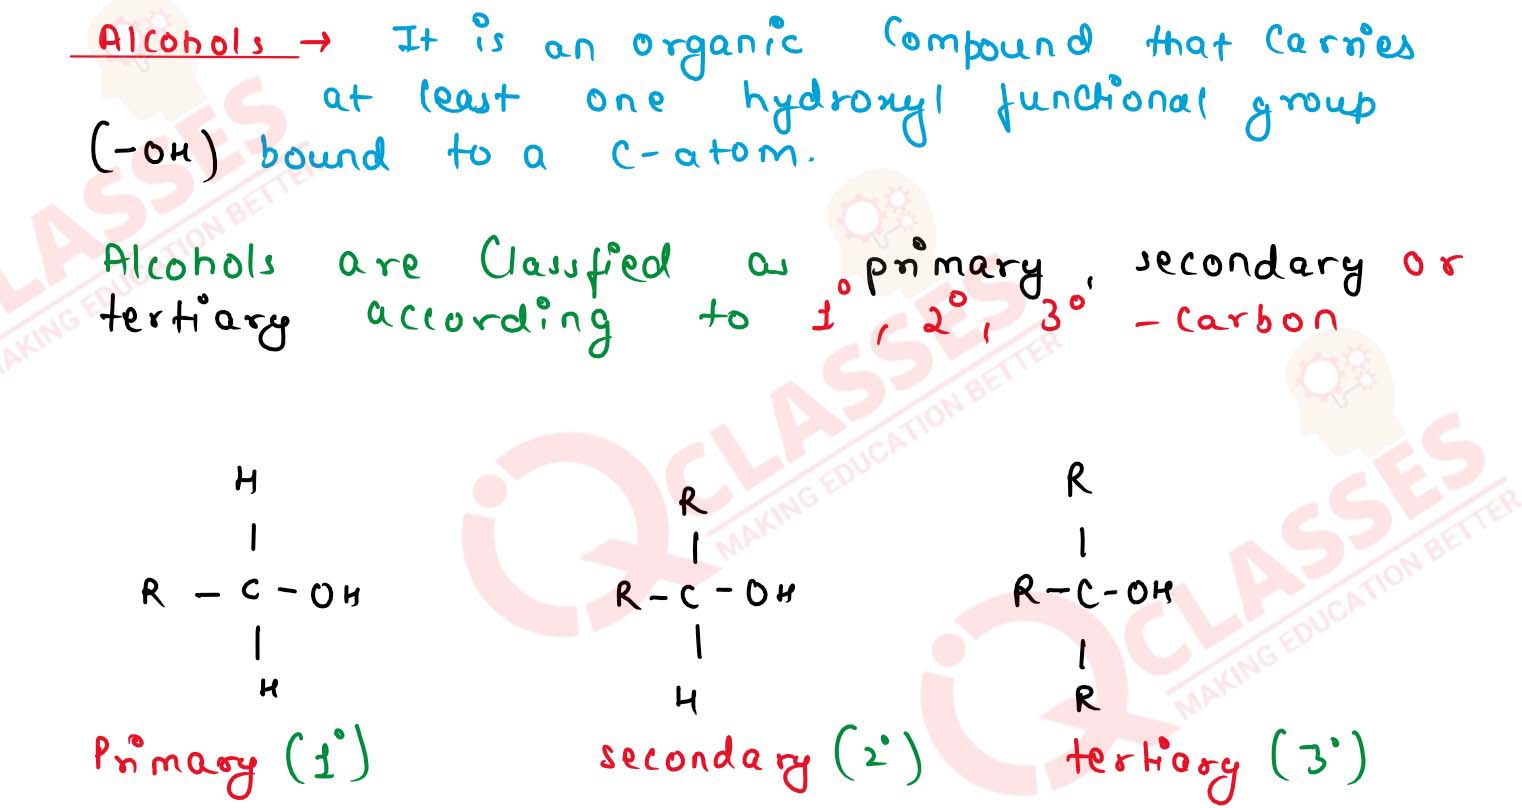 Alcohols → It is an organic Compound that Carries
at least one hydroxyl functional group
(-OH) bound to a C-atom.
Alcohols are Classfied as primary, secondary or
tertiary according to 1°, 2°, 3° - Carbon
H
|
R - C - OH
|
H
Primary (1°)
R
|
R - C - OH
|
H
secondary (2°)
R
|
R - C - OH
|
R
tertiary (3°)
CLASSES
MAKING EDUCATION BETTER
IQ CLASSES
MAKING EDUCATION BETTER
IQ CLASSES
MAKING EDUCATION BETTER